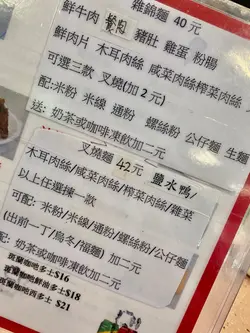 雜錦麵 40元
鮮牛肉 餐肉 豬肚 雞蛋 粉腸
鮮肉片 木耳肉絲 咸菜肉絲榨菜肉絲
可選三款 叉燒(加2元)
配:米粉 米線 通粉 螺絲粉 公仔麵 生麵
送: 奶茶或咖啡凍飲加二元
叉燒麵 42元 鹽水鴨/
木耳肉絲/咸菜肉絲/榨菜肉絲/雜菜
以上任選揀一款
可配: 米粉/米線/通粉/螺絲粉/公仔麵
(出前一丁/烏冬/福麵) 加二元
配: 奶茶或咖啡凍飲加二元
斑蘭咖吔多士$16
斑蘭咖吔鮮油多士$18
斑蘭咖吔西多士 $21